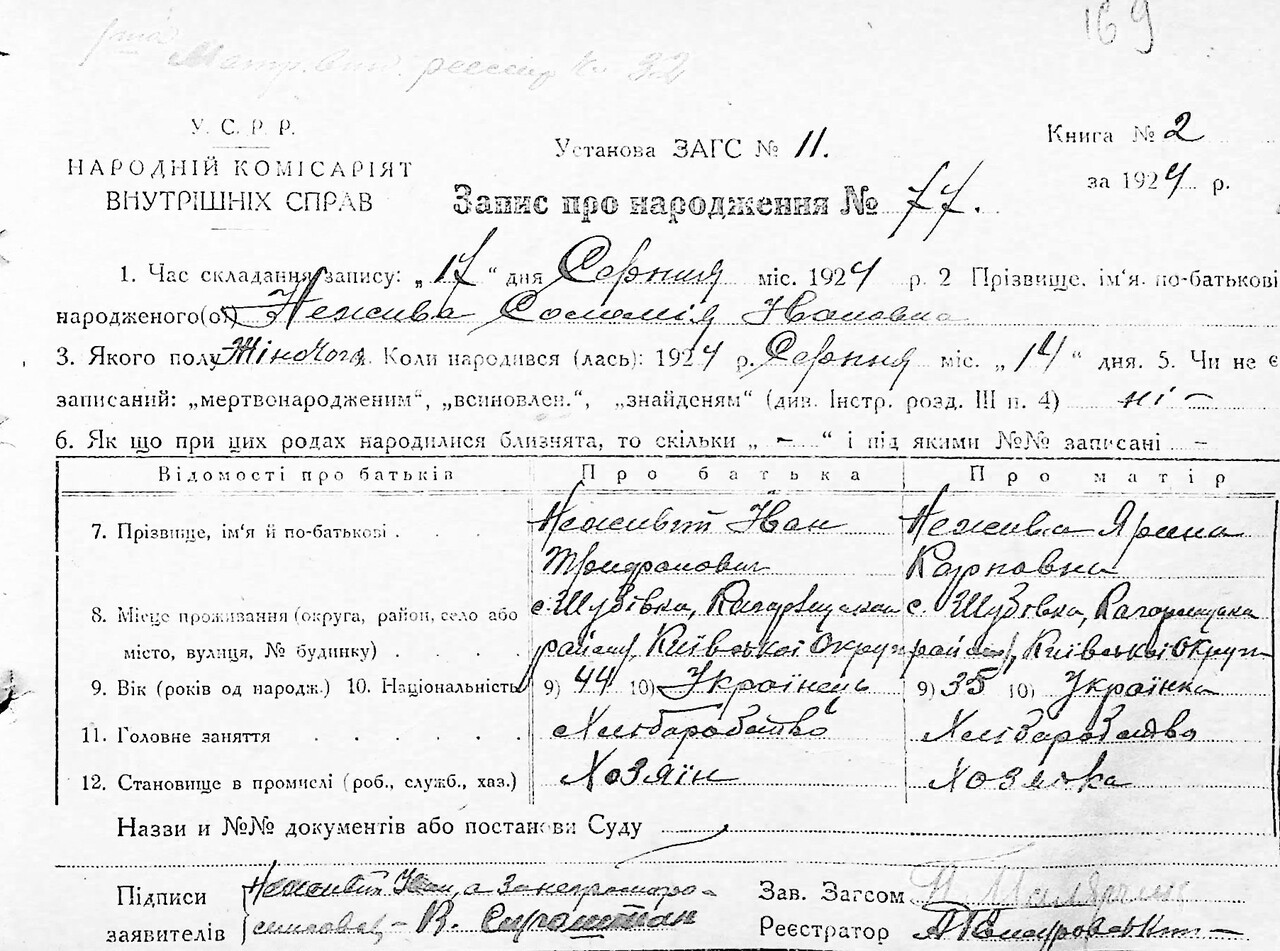 169
№ 32
У. С. Р. Р.
НАРОДНІЙ КОМІСАРІЯТ
ВНУТРІШНІХ СПРАВ
Установа ЗАГС № 11.
Книга № 2
за 1924 р.
Запис про народження № 77.
1. Час складання запису: „17“ дня Серпня міс. 1924 р. 2 Прізвище, ім‘я, по-батькові
народженого(ої) Нежива Соломія Івановна
3. Якого полу Жіночого. Коли народився (лась): 1924 р. Серпня міс. „14“ дня. 5. Чи не є
записаний: „мертвонародженим“, „всиновлен.“, „знайденям“ (див. Інстр. розд. III п. 4) ні –
6. Як що при цих родах народилися близнята, то скільки „ – “ і під якими №№ записані –
Відомості про батьків Про батька Про матір
7. Прізвище, ім‘я й по-батькові Неживий Іван Нежива Ярина
Трифонович Карповна
8. Місце проживання (округа, район, село або с. Шубівка, с. Шубівка,
місто, вулиця, № будинку) району, Київської Округи району, Київської Округи
9. Вік (років од народж.) 10. Національність 9) 44 10) Українець 9) 35 10) Українка
11. Головне заняття Хлібаробство Хлібаробство
12. Становище в промислі (роб., служб., хаз.) Хозяїн Хозяйка
Назви и №№ документів або постанови Суду
Підписи Неживий Іван, а за неграмот
заявителів – В.
Зав. Загсом
Реєстратор